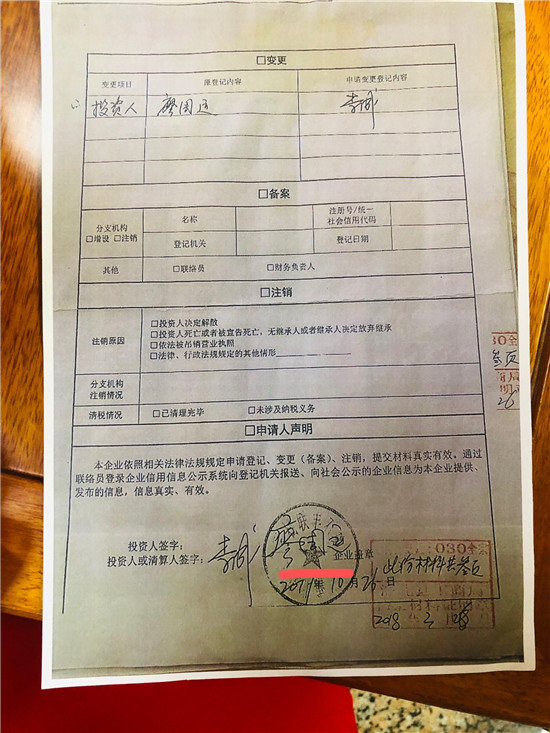 □变更
变更项目 原登记内容 申请变更登记内容
投资人 廖国连 李彬
□备案
分支机构 □增设 □注销 名称 注册号/统一社会信用代码
登记机关 登记日期
其他 □联络员 □财务负责人
□注销
注销原因
□投资人决定解散
□投资人死亡或者被宣告死亡，无继承人或者继承人决定放弃继承
□依法被吊销营业执照
□法律、行政法规规定的其他情形
分支机构注销情况
清税情况 □已清理完毕 □未涉及纳税义务
□申请人声明
本企业依照相关法律法规规定申请登记、变更（备案）、注销，提交材料真实有效。通过
联络员登录企业信用信息公示系统向登记机关报送、向社会公示的企业信息为本企业提供、
发布的信息，信息真实、有效。
投资人签字：
投资人或清算人签字：
企业盖章
年10月26日
此份材料共叁页
2018